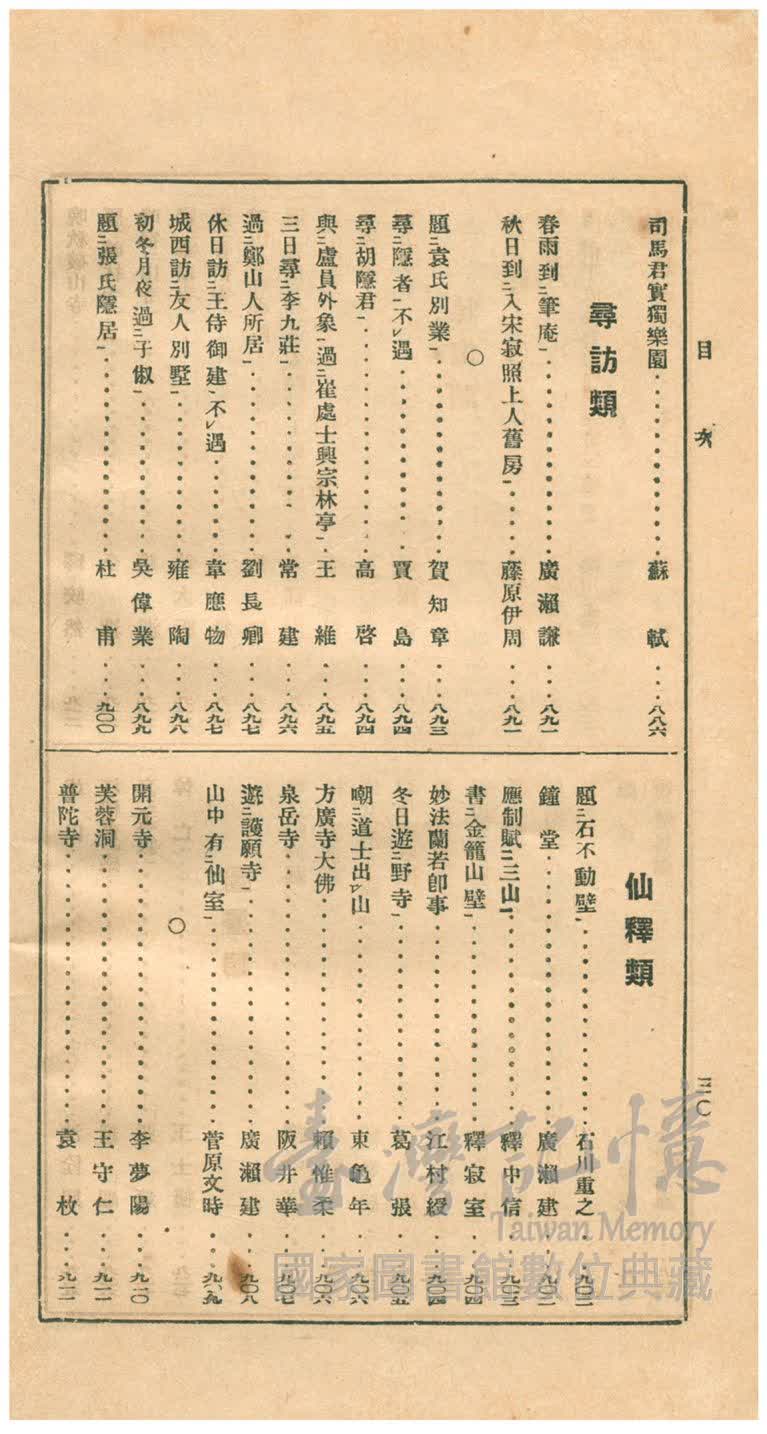 目次
三〇
司馬君實獨樂園 蘇軾 八八六
尋訪類
春雨到二筆庵一 廣瀨謙 八九一
秋日到二入宋寂照上人舊房一 藤原伊周 八九一
〇
題二袁氏別業一 賀知章 八九三
尋二隱者一不レ遇 賈島 八九四
尋二胡隱君一 高啓 八九四
與二盧員外象一過二崔處士興宗林亭一 王維 八九五
三日尋二李九莊一 常建 八九六
過二鄭山人所居一 劉長卿 八九七
休日訪二王侍御建一不レ遇 韋應物 八九七
城西訪二友人別墅一 雍陶 八九八
初冬月夜過二子俶一 吳偉業 八九九
題二張氏隱居一 杜甫 九〇〇
仙釋類
題二石不動壁一 石川重之 九〇二
鐘堂 廣瀨建 九〇二
應制賦二三山一 釋中信 九〇三
書二金籠山壁一 釋寂室 九〇四
妙法蘭若卽事 江村綬 九〇四
冬日遊二野寺一 葛張 九〇五
嘲二道士出一レ山 東龜年 九〇六
方廣寺大佛 賴惟柔 九〇六
泉岳寺 阪井華 九〇七
遊二護願寺一 廣瀨建 九〇八
山中有二仙室一 菅原文時 九〇九
〇
開元寺 李夢陽 九一〇
芙蓉洞 王守仁 九一一
普陀寺 袁枚 九一一
臺灣記憶
Taiwan Memory
國家圖書館數位典藏